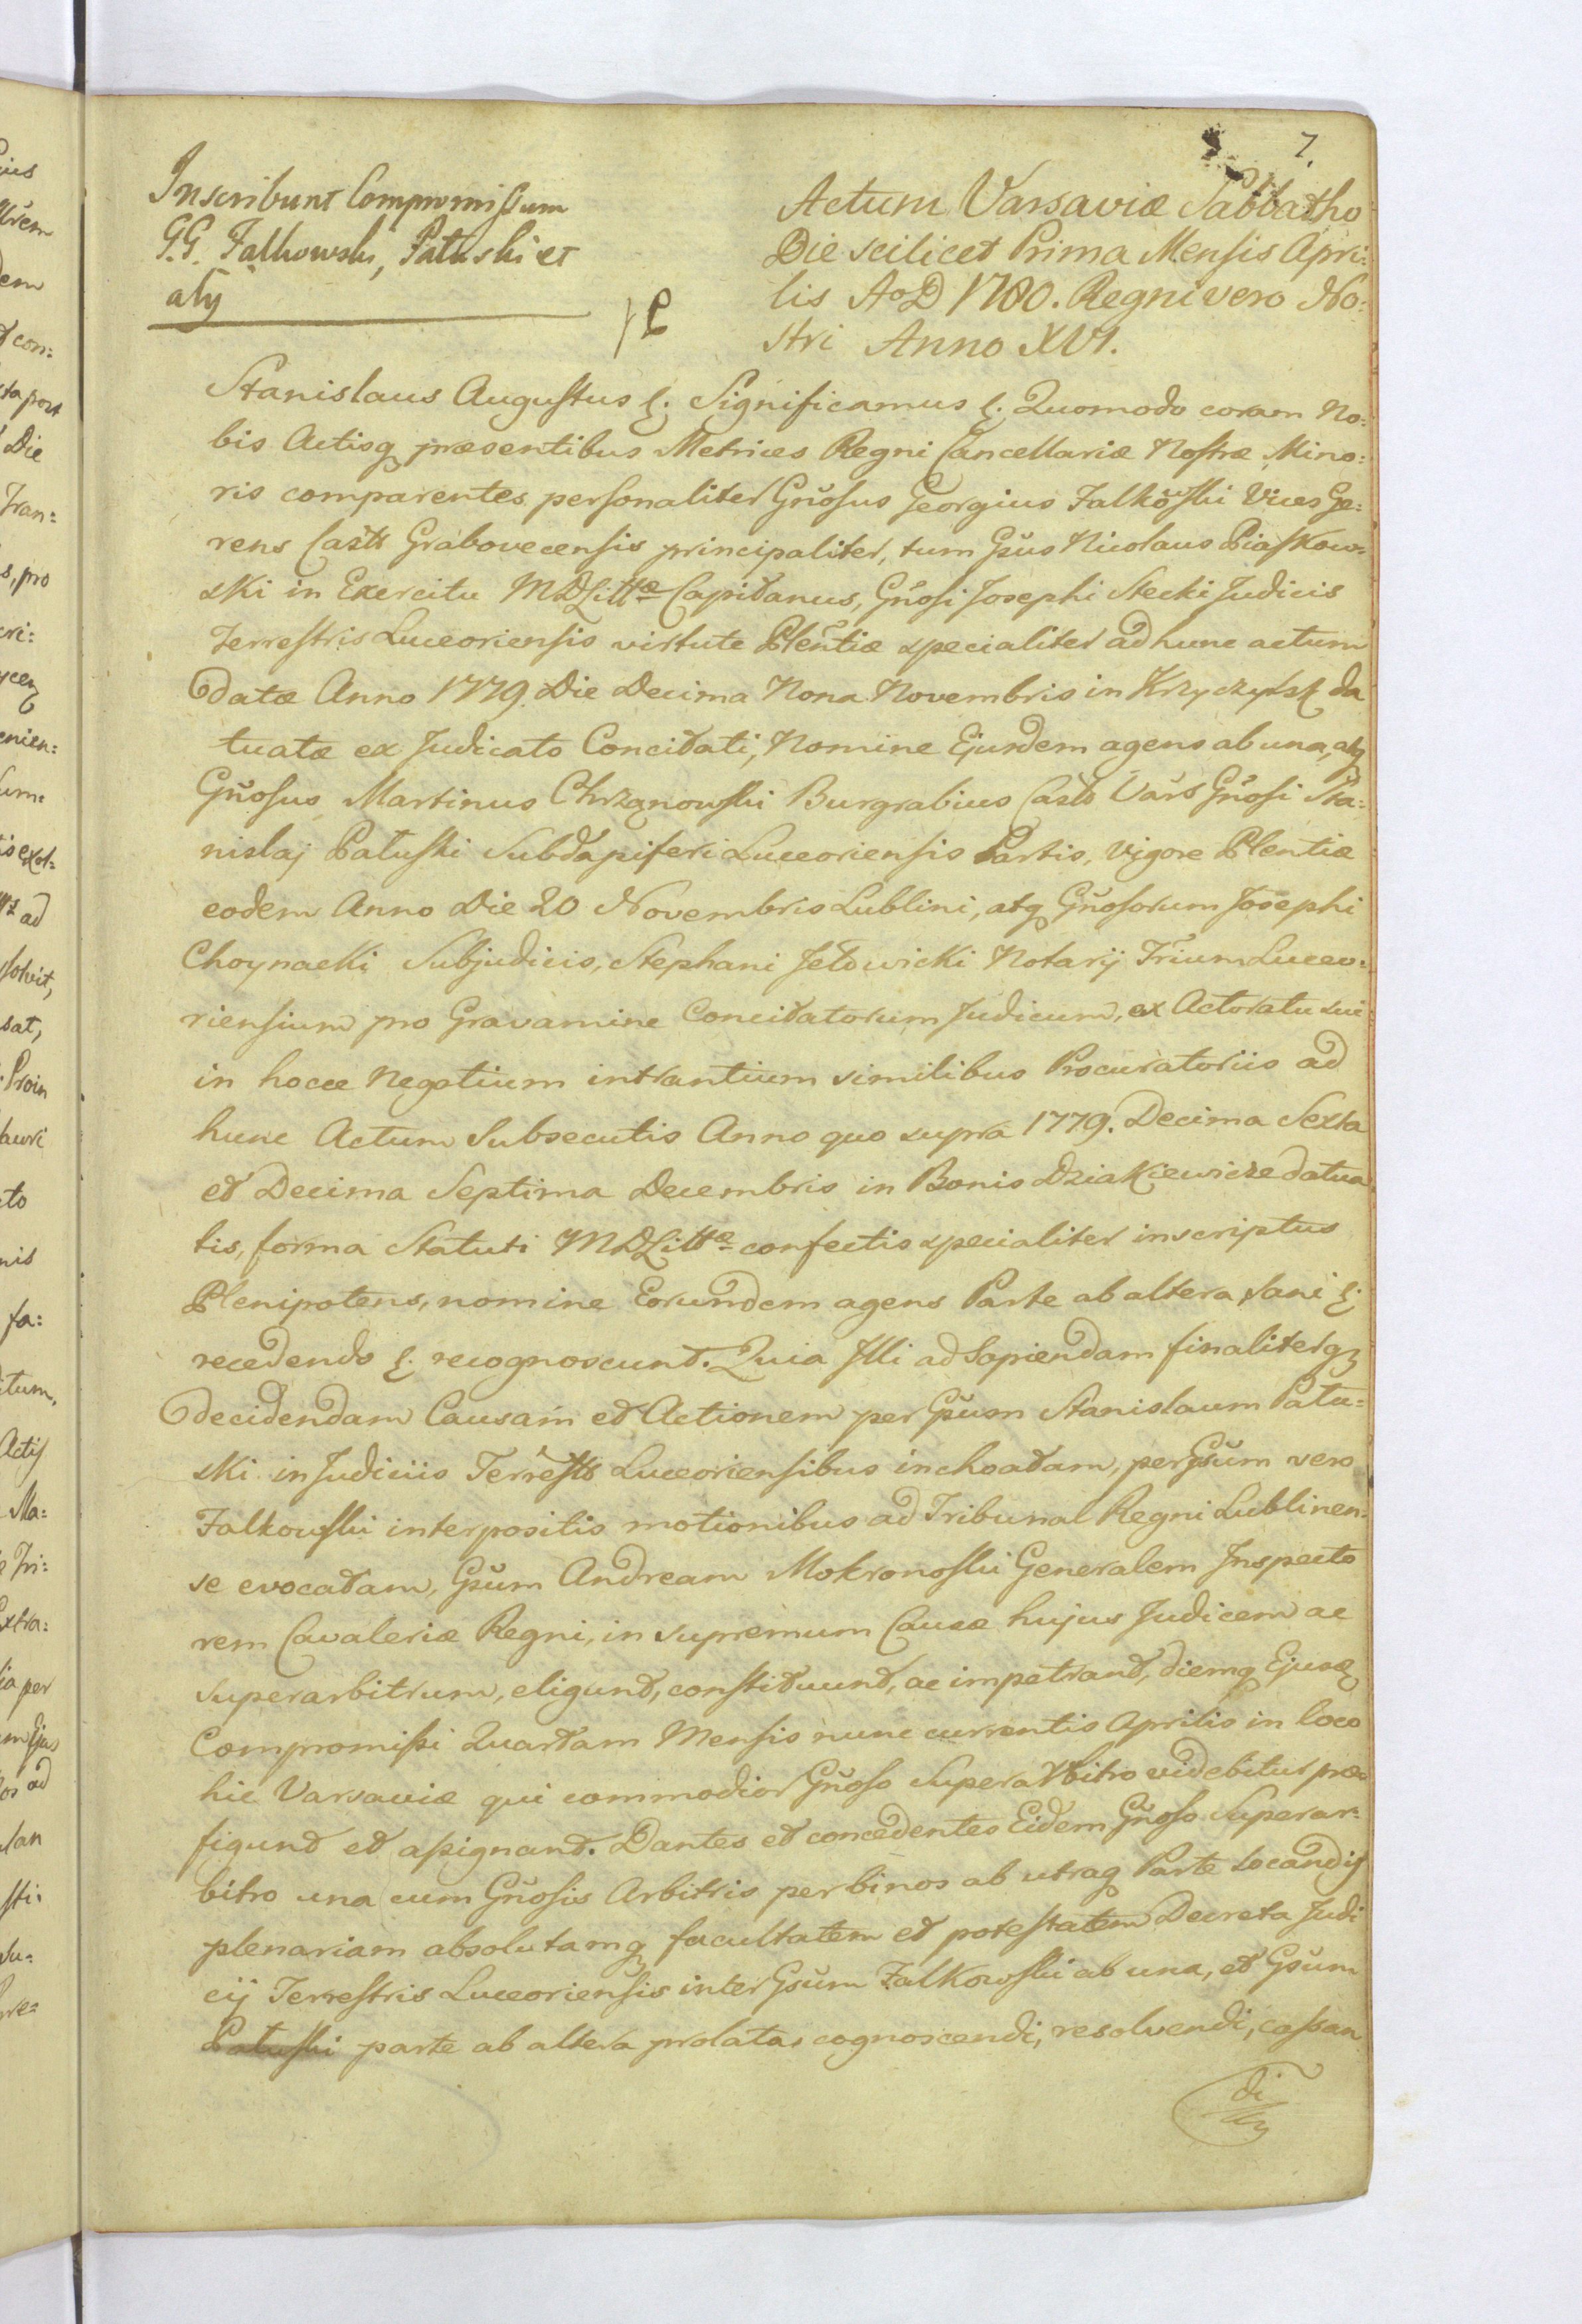 7.
Inscribunt Compromissum
G.G. Falkowski, Patuski et
alij
Actum Varsaviæ Sabbatho
Die scilicet Prima Mensis Apri:
lis AoD 1780. Regni vero No:
stri Anno XVI.
Stanislaus Augustus &. Significamus &. Quomodo coram No:
bis Actisq præsentibus Metrices Regni Cancellariæ Nostræ Mino:
ris comparentes personaliter Gnosus Georgius Falkoski Vices Ge:
rens Casts Grabovecensis principaliter, tum Gsus Nicolaus Piaskow:
ski in Exercitu MDLittæ Capitanus, Gnosi Josephi Stecki Judicis
Terrestris Luceoriensis virtute Plentiæ specialiter ad hunc actum
datæ Anno 1779. Die Decima Nona Novembris in da
tuatæ ex Judicato Concitati, Nomine Ejusdem agens ab una, atq
Gnosus Martinus Chrzanowski Burgrabius Casts Vars Gnosi Sta:
nislaj Patuski Subdapiferi Luceoriensis Partis, vigore Plentiæ
eodem Anno Die 20 Novembris Lublini, atq Gnosorum Josephi
Choynacki Subjudicis, Stephani Jełowicki Notarij Trium Luceo:
riensium pro Gravamine Concitatorum Judicum, ex Actoratu sui
in hocce Negotium intrantium similibus Procuratoriis ad
hunc Actum Subsecutis Anno quo supra 1779. Decima Sexta
et Decima Septima Decembris in Bonis Dziakiewicze datua
tis, forma Statuti MDLittæ confectis specialiter inscriptus
Plenipotens, nomine Eorundem agens Parte ab altera, sani &.
recedendo &. recognoscunt. Quia Illi ad Sopiendam finaliterq
decidendam Causam et Actionem per Gsum Stanislaum Patu=
ski in Judiciis Terrests Luceoriensibus inchoatam, per Gsum vero
Falkowski interpositis motionibus ad Tribunal Regni Lublinen:
se evocatam, Gsum Andream Mokronoski Generalem Inspecto
rem Cavaleriæ Regni, in supremum Causæ hujus Judicem ac
superarbitrum, eligunt, constituunt, ac impetrant, diemq Ejusq
Compromissi Quartam Mensis nunc currentis Aprilis in loco
hic Varsaviæ qui commodior Gnoso Superarbitro videbitur præ
figunt et assignant. Dantes et concedentes Eidem Gnoso Superar:
bitro una cum Gnosis Arbitris per binos ab utraq Parte locandis
plenariam absolutamq facultatem et potestatem Decreta Judi
cij Terrestris Luceoriensis inter Gsum Falkowski ab una, et Gsum
Patuski parte ab altera prolata, cognoscendi, resolvendi, cassan
di